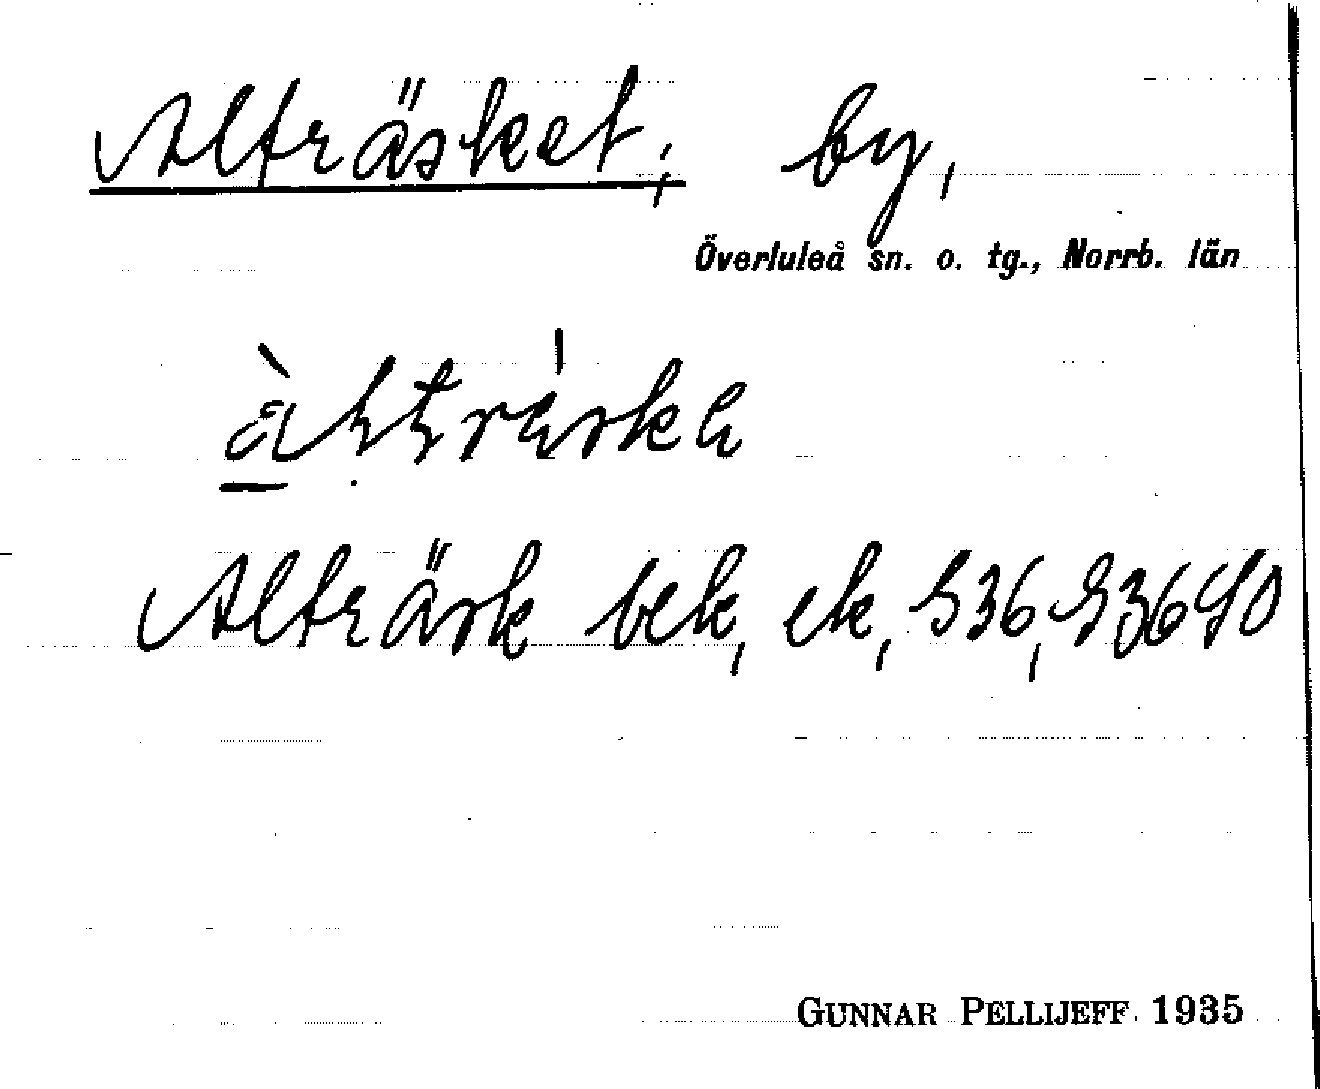 Alträsket, by,
Överluleå sn. o. tg., Norrb. län
Alträsk bek, ek,
GUNNAR PELLIJEFF 1935